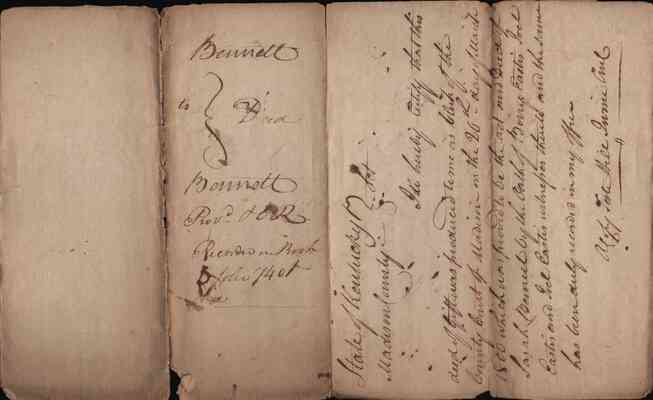 Bennett
to } Deed
Bennett
Prov.d & OR
Recorded in Book
D folio 740
State of Kentucky } Sct
Madison County
I do hereby Certify that this
deed of was produced to me as Clerk of the
County Court of Madison on the 20th day of
which was proved to be the act and Deed of
Sarah Bennet by the Oath of Estis Joel
Estis and Estis witnesses thereto and the same
has been duly recorded in my office
Irvine